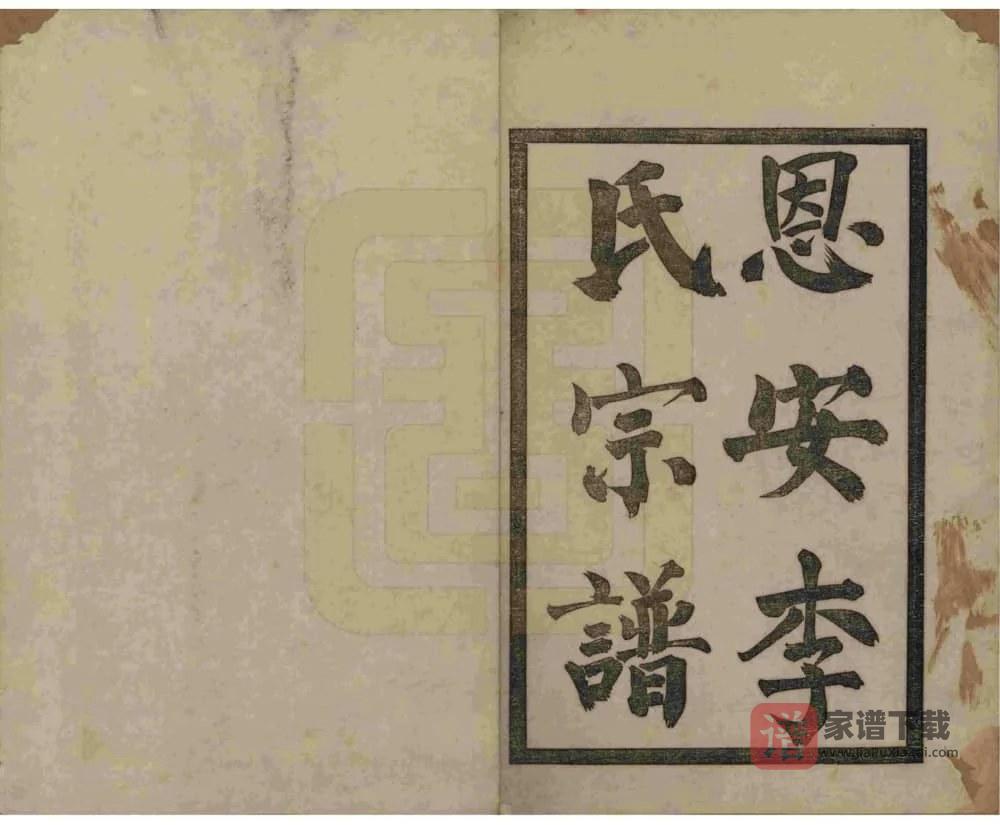 恩安李
氏宗譜
谱
家谱下载
www.jiapuxiazai.com